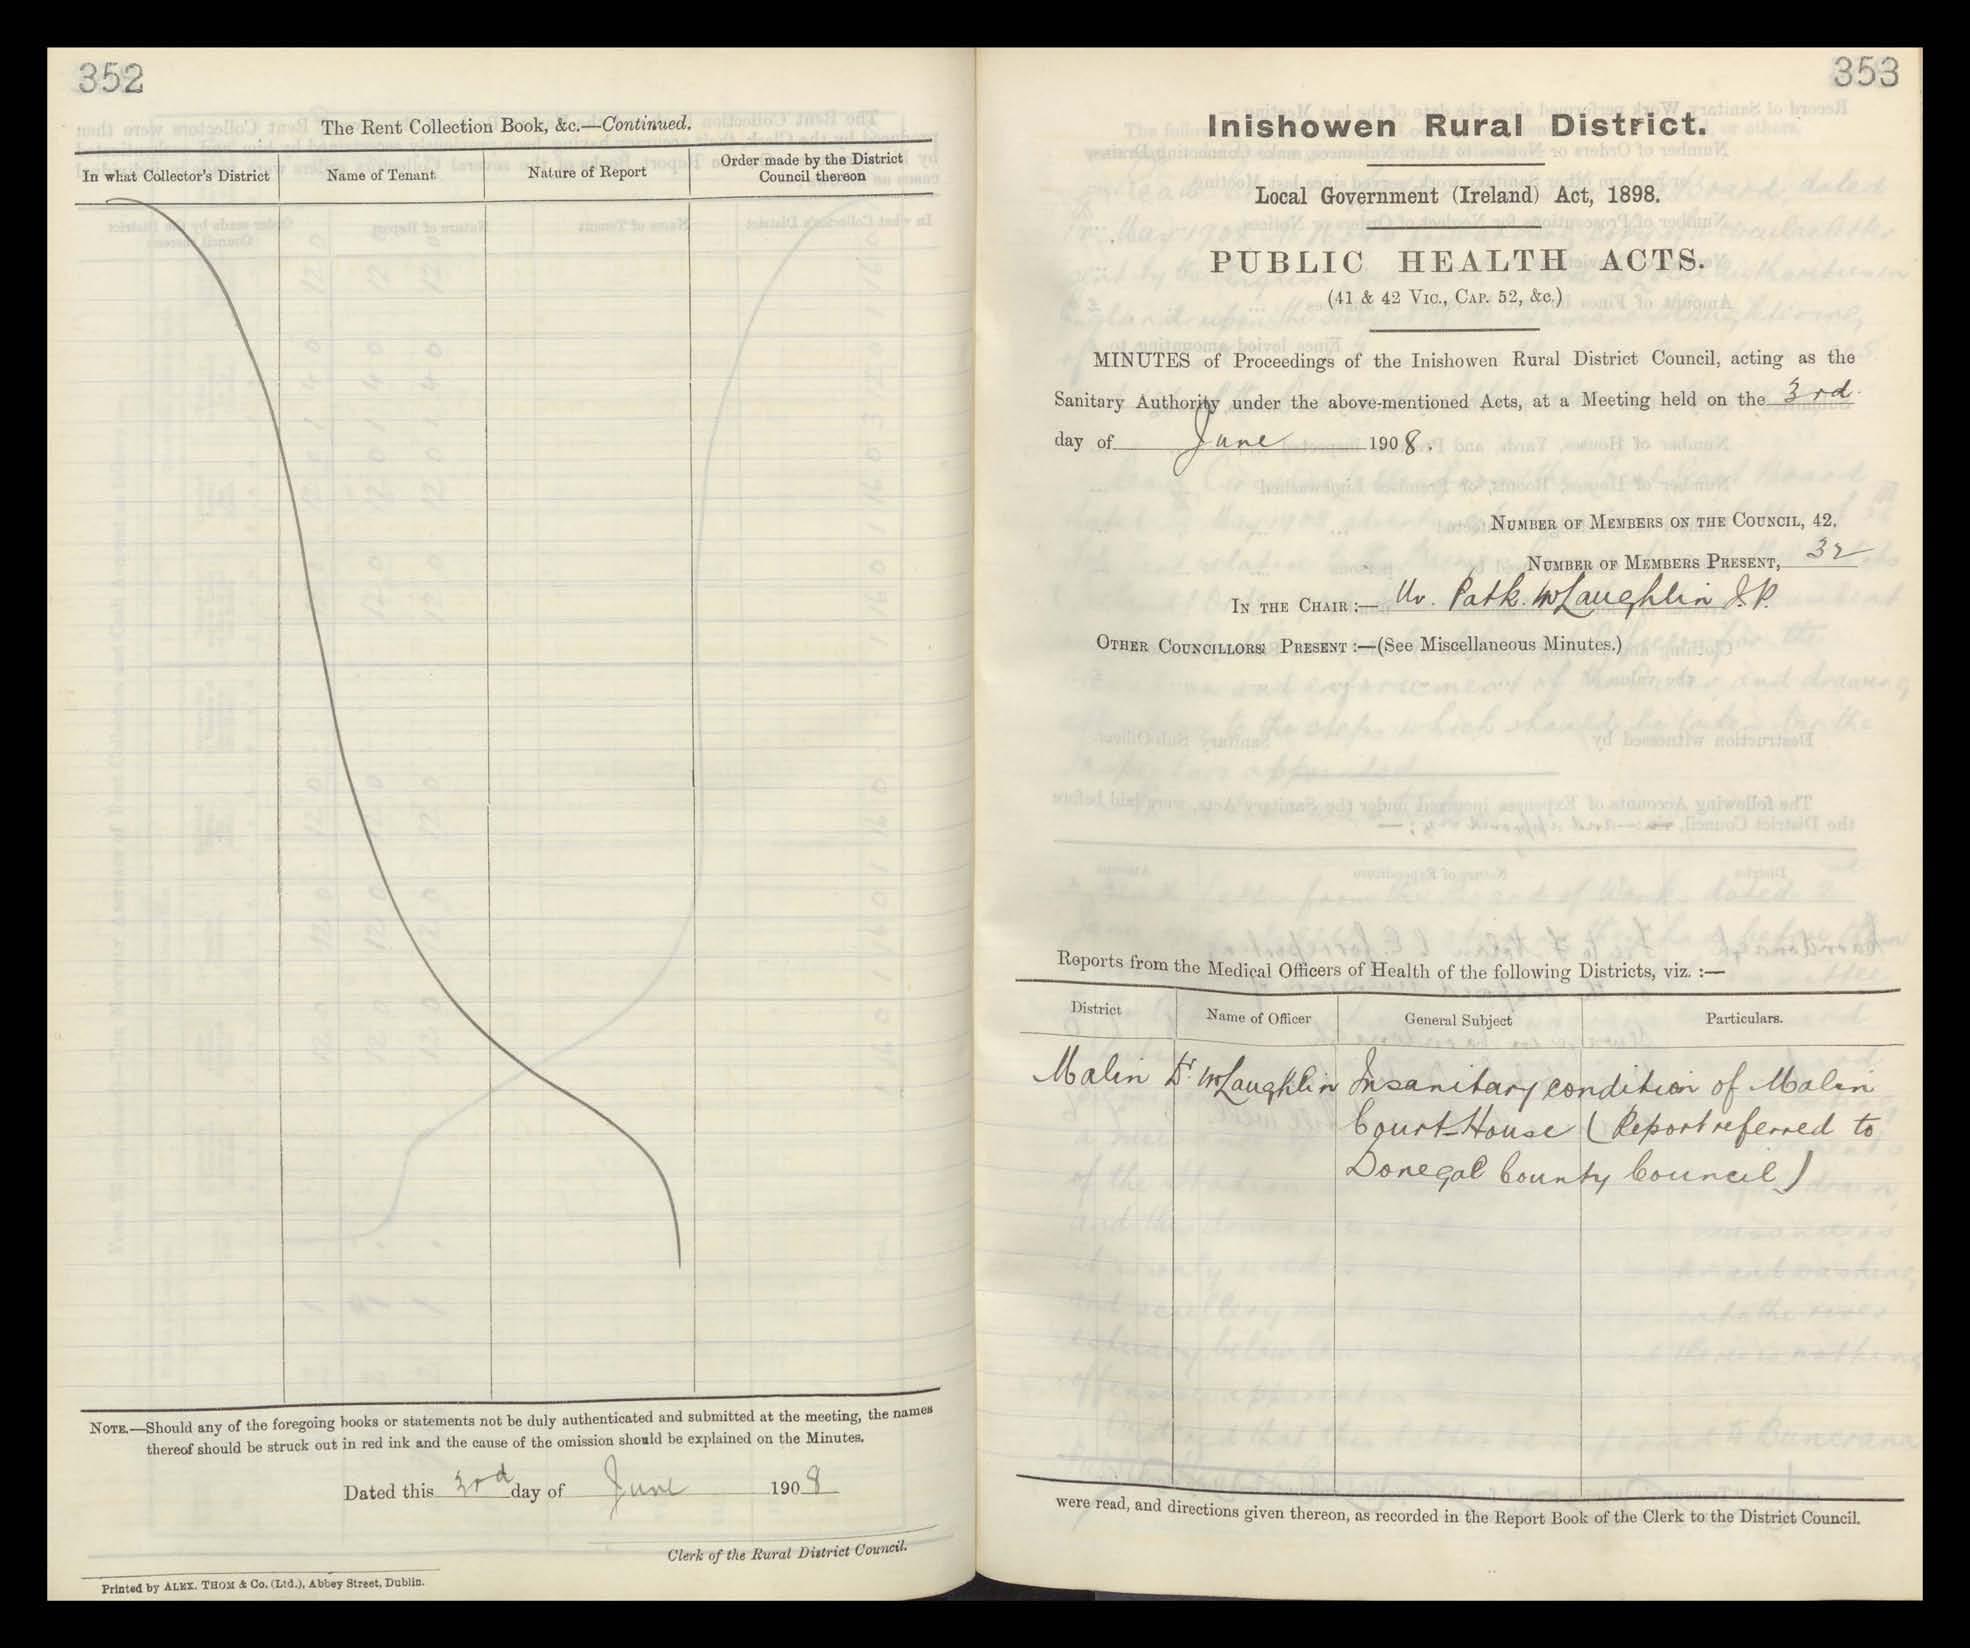 352
The Rent Collection Book, &c.—Continued.
In what Collector's District
Name of Tenant
Nature of Report
Order made by the District
Council thereon
NOTE.—Should any of the foregoing books or statements not be duly authenticated and submitted at the meeting, the names
thereof should be struck out in red ink and the cause of the omission should be explained on the Minutes.
Dated this 3rd day of June 1908
Clerk of the Rural District Council.
Printed by ALEX. THOM & Co. (Ltd.), Abbey Street, Dublin.
353
Inishowen Rural District.
Local Government (Ireland) Act, 1898.
PUBLIC HEALTH ACTS.
(41 & 42 VIC., CAP. 52, &c.)
MINUTES of Proceedings of the Inishowen Rural District Council, acting as the
Sanitary Authority under the above-mentioned Acts, at a Meeting held on the 3rd
day of June 1908.
NUMBER OF MEMBERS ON THE COUNCIL, 42.
NUMBER OF MEMBERS PRESENT, 32
IN THE CHAIR :— Mr. Patk. McLaughlin J.P.
OTHER COUNCILLORS PRESENT :—(See Miscellaneous Minutes.)
Reports from the Medical Officers of Health of the following Districts, viz. :—
District
Name of Officer
General Subject
Particulars.
Malin Dr McLaughlin Insanitary condition of Malin
Court-House (Report referred to
Donegal County Council)
were read, and directions given thereon, as recorded in the Report Book of the Clerk to the District Council.